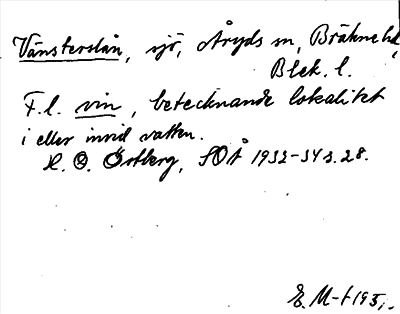 Vänsterslån, sjö, Åryds sn, Bräkne hd,
Blek. l.
F.l. vin, betecknande lokalitet
i eller invid vatten.
K. G. Östberg, SOÅ 1932-34 s. 28.
E. M-t 195